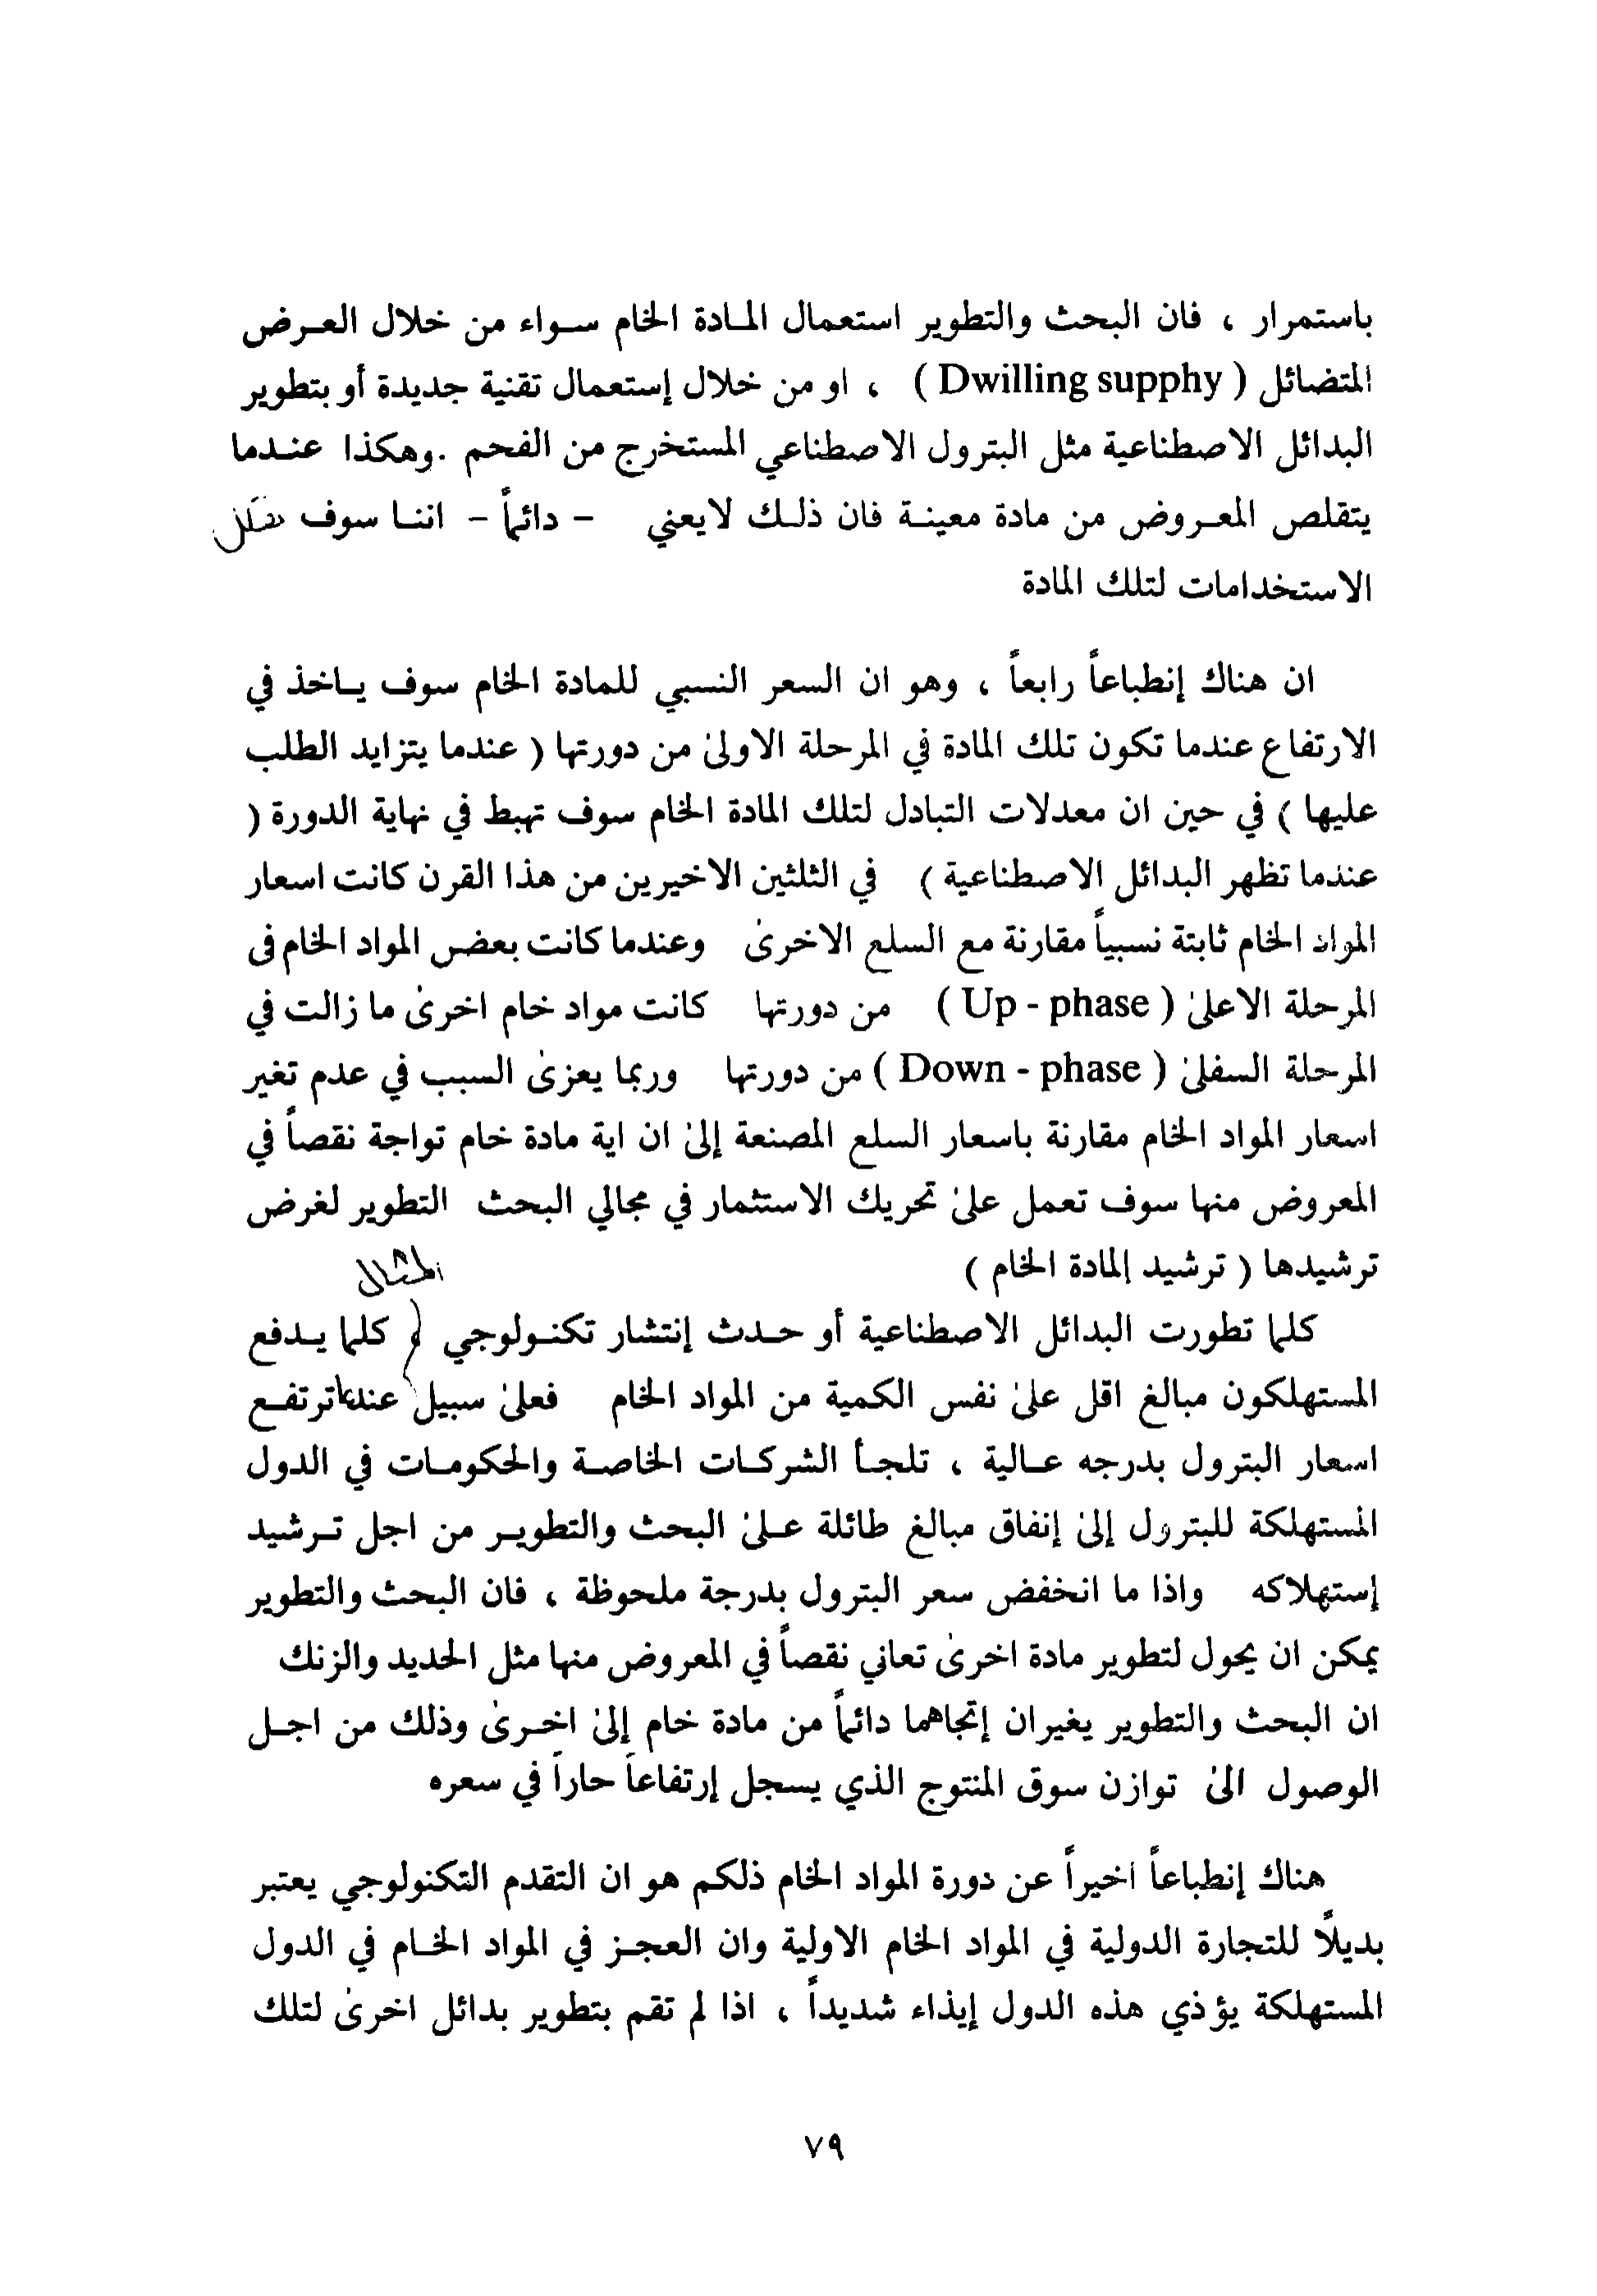 باستمرار ، فان البحث والتطوير استعمال المادة الخام سواء من خلال العرض
المتضائل ( Dwilling supphy ) ، او من خلال إستعمال تقنية جديدة أو بتطوير
البدائل الاصطناعية مثل البترول الاصطناعي المستخرج من الفحم . وهكذا عندما
يتقلص المعروض من مادة معينة فان ذلك لايعني - دائماً - اننا سوف
الاستخدامات لتلك المادة
ان هناك إنطباعاً رابعاً ، وهو ان السعر النسبي للمادة الخام سوف ياخذ في
الارتفاع عندما تكون تلك المادة في المرحلة الاولىٰ من دورتها ( عندما يتزايد الطلب
عليها ) في حين ان معدلات التبادل لتلك المادة الخام سوف تهبط في نهاية الدورة (
عندما تظهر البدائل الاصطناعية ) في الثلثين الاخيرين من هذا القرن كانت اسعار
المواد الخام ثابتة نسبياً مقارنة مع السلع الاخرىٰ وعندما كانت بعض المواد الخام فى
المرحلة الاعلىٰ ( Up - phase ) من دورتها كانت مواد خام اخرىٰ ما زالت في
المرحلة السفلىٰ ( Down - phase ) من دورتها وربما يعزىٰ السبب في عدم تغير
اسعار المواد الخام مقارنة باسعار السلع المصنعة إلىٰ ان اية مادة خام تواجة نقصاً في
المعروض منها سوف تعمل علىٰ تحريك الاستثمار في مجالي البحث التطوير لغرض
ترشيدها ( ترشيد المادة الخام )
المثال
كلما تطورت البدائل الاصطناعية أو حدث إنتشار تكنولوجي ، كلما يدفع
المستهلكون مبالغ اقل علىٰ نفس الكمية من المواد الخام فعلىٰ سبيل عندما ترتفع
اسعار البترول بدرجه عالية ، تلجأ الشركات الخاصة والحكومات في الدول
المستهلكة للبترول إلىٰ إنفاق مبالغ طائلة علىٰ البحث والتطوير من اجل ترشيد
إستهلاكه واذا ما انخفض سعر البترول بدرجة ملحوظة ، فان البحث والتطوير
يمكن ان يحول لتطوير مادة اخرىٰ تعاني نقصاً في المعروض منها مثل الحديد والزنك
ان البحث والتطوير يغيران إتجاهما دائماً من مادة خام إلىٰ اخرىٰ وذلك من اجل
الوصول الىٰ توازن سوق المنتوج الذي يسجل إرتفاعاً حاراً في سعره
هناك إنطباعاً اخيراً عن دورة المواد الخام ذلكم هو ان التقدم التكنولوجي يعتبر
بديلاً للتجارة الدولية في المواد الخام الاولية وان العجز في المواد الخام في الدول
المستهلكة يؤذي هذه الدول إيذاء شديداً ، اذا لم تقم بتطوير بدائل اخرىٰ لتلك
٧٩